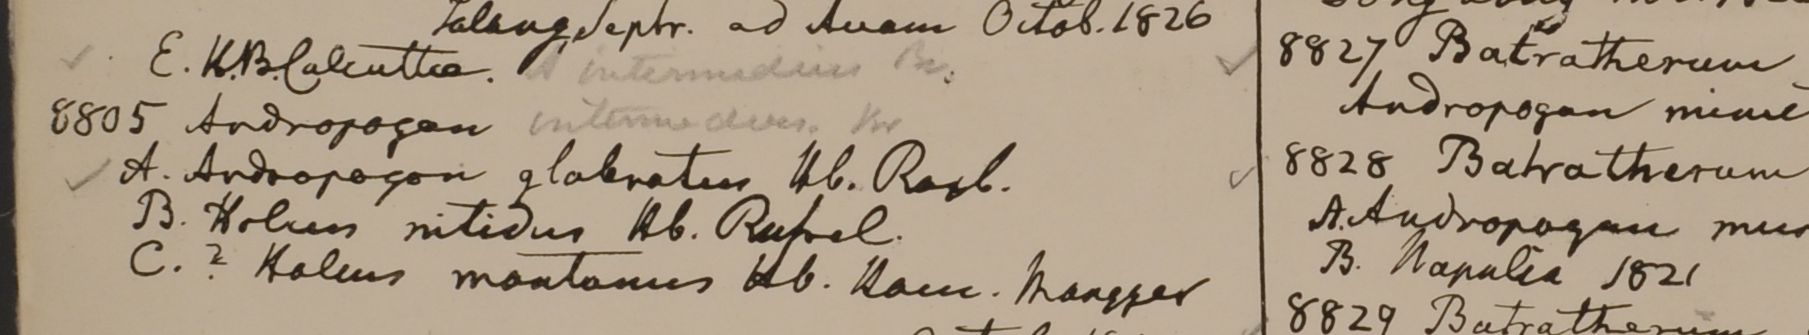 Talong Septr. ad Avam Octob. 1826
E. H.B. Calcutta. intermedius Br.
8805 Andropogon intermedius. Br
A. Andropogon glabratus Hb. Roxb.
B. Holcus nitidus Hb. Russel.
C. ? Holcus montanus Hb. Ham. Mongger
8827 Batratherum
Andropogon
8828 Batratherum
A. Andropogon
B. Napalia 1821
8829 Batratherum